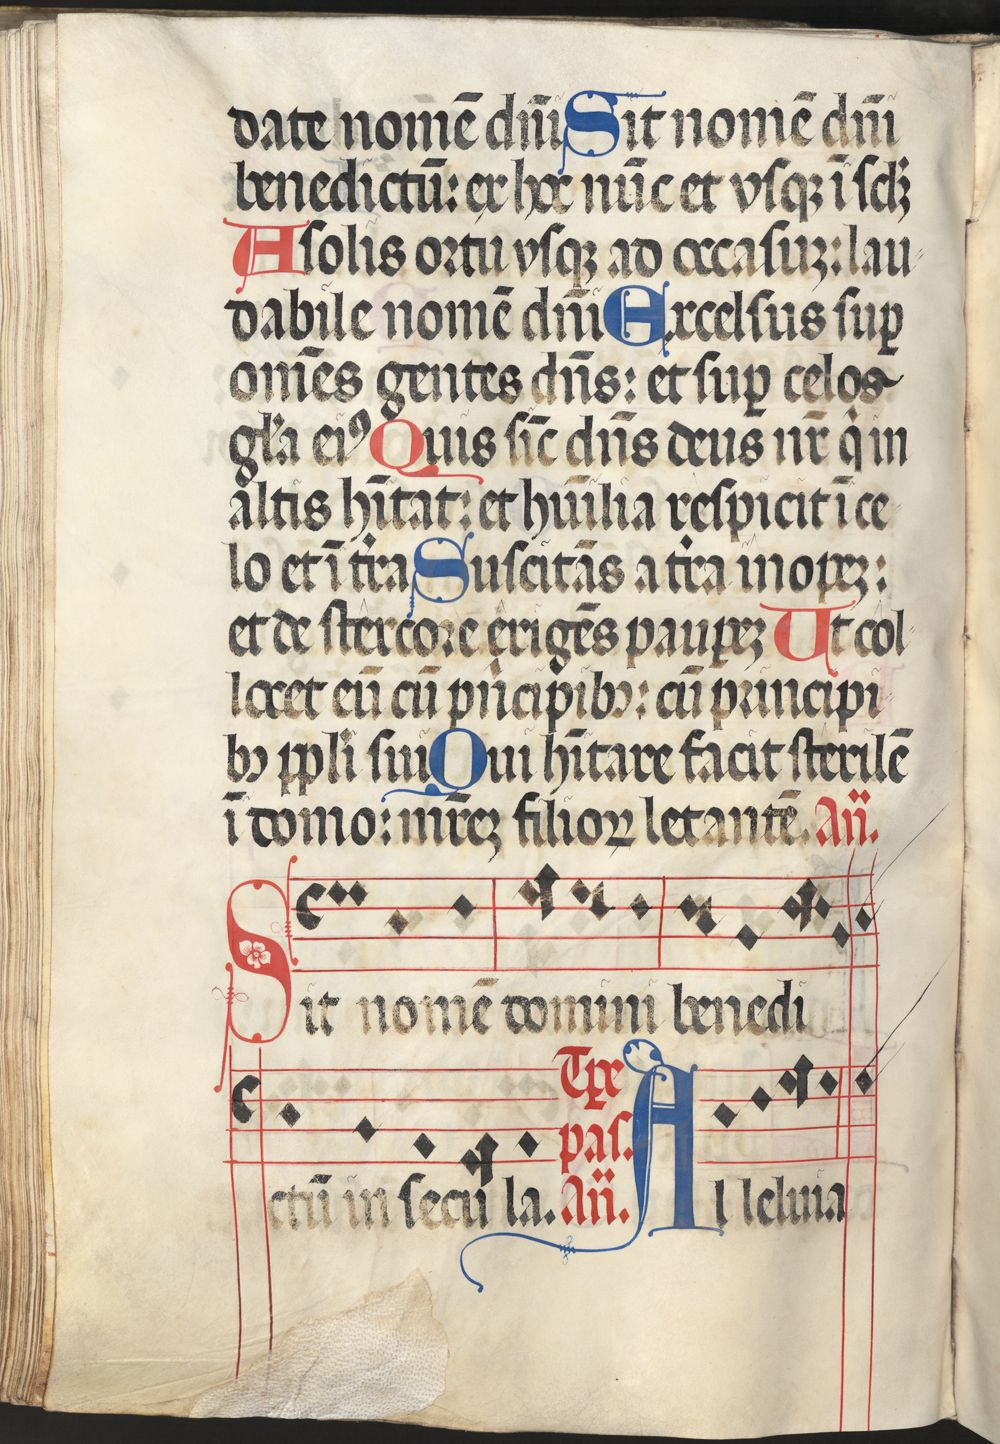 date nomē dn̄i Sit nomē dn̄i
benedictū: ex hoc nūc et vsqꝫ ī scl̄ꝫ
A solis ortu vsqꝫ ad occasuꝫ: lau
dabile nomē dn̄i Excelsus suꝑ
om̄es gentes dn̄s: et suꝑ celos
gl̄ia eiꝰ Quis sic̄ dn̄s deus nr̄ qͥ in
altis hītat: et hūilia respicit ī ce
lo et ī tr̄a Suscitās a tr̄a inopeꝫ:
et de stercore erigēs paupeꝫ Ut col
locet eū cū pͥncipibꝰ: cū principi
bꝰ ppl̄i sui Qui hītare facit sterilē
ī domo: mr̄eꝫ filioꝝ letantē. Añ.
Sit nomē domini benedi
ctū in secu la. Tꝑe pas. Añ. Al leluia